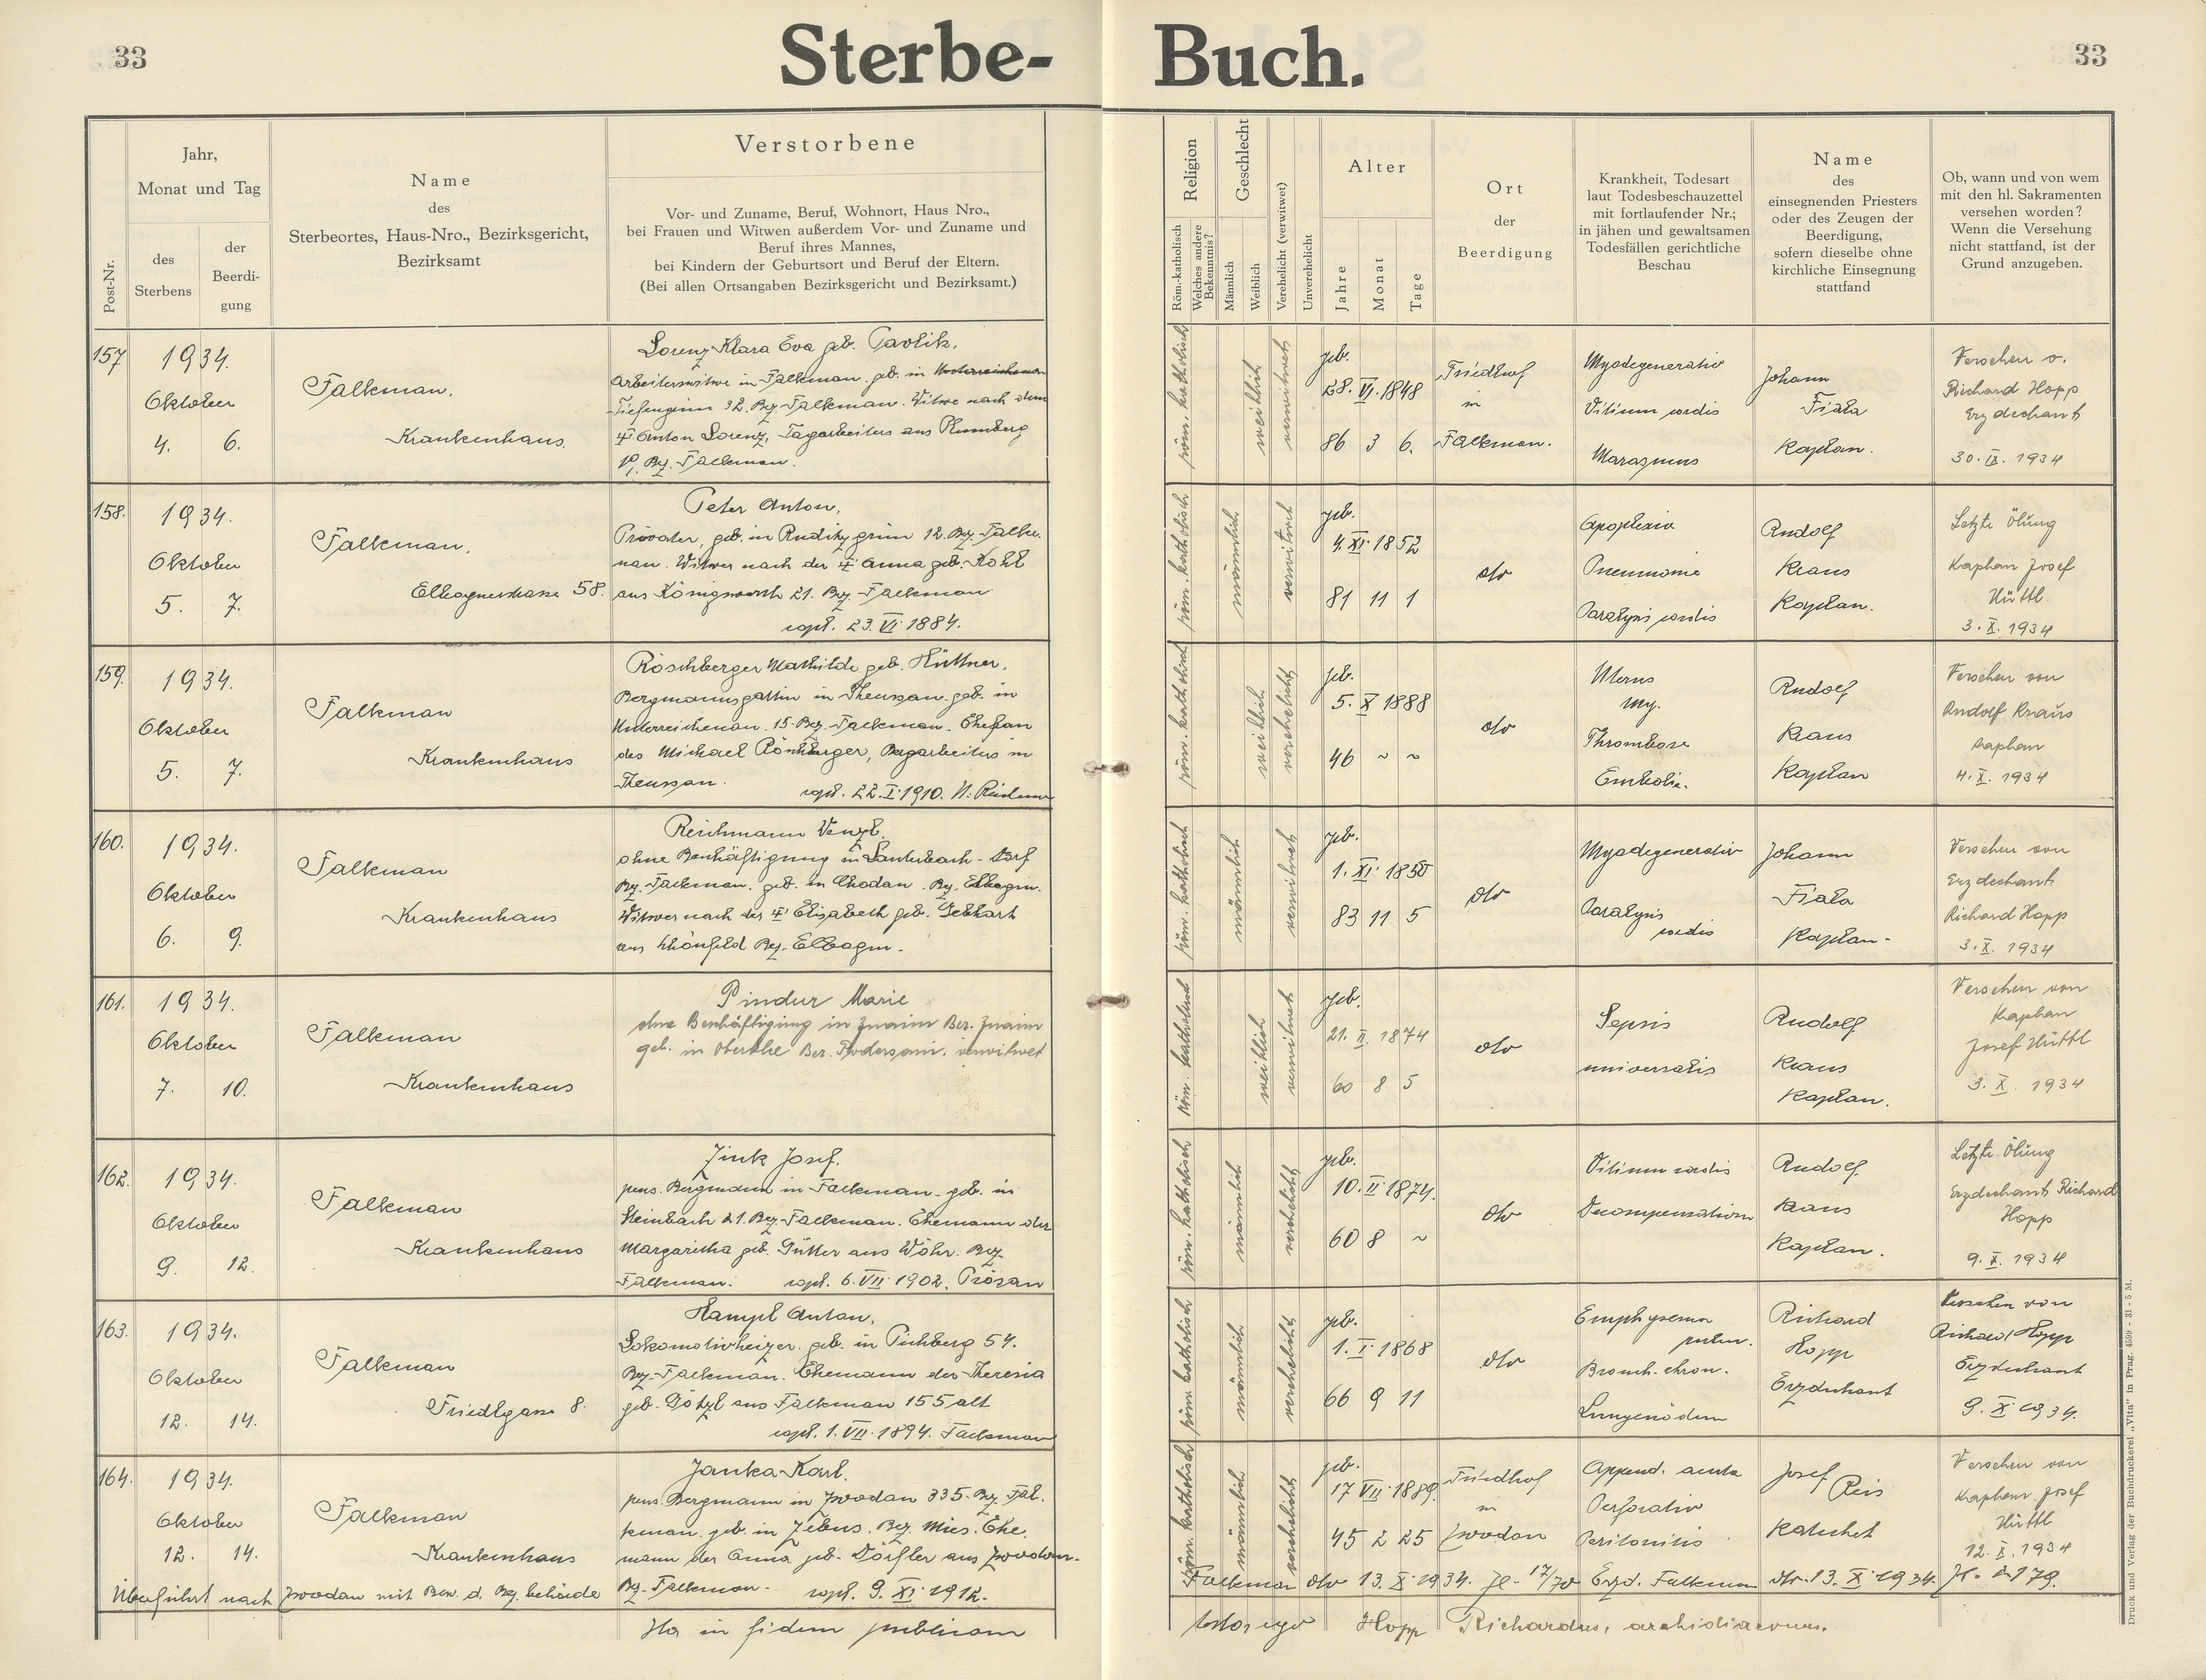 33
Sterbe-
Buch.
33
Post-Nr.
Jahr,
Monat und Tag
des
Sterbens
der
Beerdi-
gung
Name
des
Sterbeortes, Haus-Nro., Bezirksgericht,
Bezirksamt
Verstorbene
Vor- und Zuname, Beruf, Wohnort, Haus Nro.,
bei Frauen und Witwen außerdem Vor- und Zuname und
Beruf ihres Mannes,
bei Kindern der Geburtsort und Beruf der Eltern.
(Bei allen Ortsangaben Bezirksgericht und Bezirksamt.)
Religion
Röm.-katholisch
Welches andere
Bekenntnis?
Geschlecht
Männlich
Weiblich
Verehelicht (verwitwet)
Unverehelicht
Alter
Jahre
Monat
Tage
Ort
der
Beerdigung
Krankheit, Todesart
laut Todesbeschauzettel
mit fortlaufender Nr.;
in jähen und gewaltsamen
Todesfällen gerichtliche
Beschau
Name
des
einsegnenden Priesters
oder des Zeugen der
Beerdigung,
sofern dieselbe ohne
kirchliche Einsegnung
stattfand
Ob, wann und von wem
mit den hl. Sakramenten
versehen worden?
Wenn die Versehung
nicht stattfand, ist der
Grund anzugeben.
157
1934.
Oktober
4. 6.
Falkenau.
Krankenhaus.
Lorenz Klara Eva geb. Pavlik,
Arbeiterswitwe in Falkenau. geb. in
Tiefengrün 32. Bez. Falkenau. Witwe nach dem
Anton Lorenz, Tagarbeiters aus
19, Bez. Falkenau.
röm. katholisch
weiblich
verwitwet
geb.
28. VI. 1848
86 3 6.
Friedhof
in
Falkenau.
Myodegeneratio
Vitium cordis
Marasmus
Johann
Fiala
Kaplan.
Versehen v.
Richard Hopp
Erzdechant
30. IX. 1934
158.
1934.
Oktober
5. 7.
Falkenau,
Elbognerstrasse 58.
Peter Anton,
Privater, geb. in Ruditzgrün 12. Bez. Falke-
nau. Witwer nach der Anna geb. Kohl
aus Königswerth 21. Bez. Falkenau
copl. 23. VI 1884.
röm. katholisch
männlich
verwitwet
geb.
4. XI. 1852
81 11 1
dto
Apoplexia
Pneumonie
Paralysis cordis
Rudolf
Kraus
Kaplan.
Letzte Ölung
Kaplan Josef
Hüttl
3. X. 1934
159.
1934.
Oktober
5. 7.
Falkenau
Krankenhaus
Röschberger Mathilde geb. Hüttner,
Bergmannsgattin in Theussau. geb. in
Unterreichenau. 15. Bez. Falkenau. Ehefrau
des Michael Röschberger, Bergarbeiters in
Theussau.
copl. 22. I. 1910.
röm. katholisch
weiblich
verehelicht
geb.
5. X 1888
46 ~ ~
dto
Uterus
my.
Thrombose
Embolie.
Rudolf
Kraus
Kaplan
Versehen von
Rudolf Kraus
Kaplan
4. X. 1934
160.
1934.
Oktober
6. 9.
Falkenau
Krankenhaus
Reichmann Wenzl.
ohne Beschäftigung in Lauterbach-Dorf
Bez. Falkenau. geb. in Chodau. Bez. Elbogen.
Witwer nach der Elisabeth geb. Gebhart
aus Schönfeld Bez. Elbogen.
röm. katholisch
männlich
verwitwet
geb.
1. XI. 1850
83 11 5
dto
Myodegeneratio
Paralysis
cordis
Johann
Fiala
Kaplan.
Versehen von
Erzdechant
Richard Hopp
3. X. 1934
161.
1934.
Oktober
7. 10.
Falkenau
Krankenhaus
Pindur Marie
ohne Beschäftigung in Znaim Bez. Znaim
geb. in Bez. Podersam. verwitwet
röm. katholisch
weiblich
verwitwet
geb.
21. II. 1874
60 8 5
dto
Sepsis
universalis
Rudolf
Kraus
Kaplan.
Versehen von
Kaplan
Josef Hüttl
3. X. 1934
162.
1934.
Oktober
9. 12.
Falkenau
Krankenhaus
Zink Josef.
pens. Bergmann in Falkenau. geb. in
Steinbach 21. Bez. Falkenau. Ehemann der
Margaretha geb. Gütter aus Wöhr. Bez.
Falkenau. copl. 6. VII 1902. Prösau
röm. katholisch
männlich
verehelicht
geb.
10. II 1874.
60 8 ~
dto
Vitium cordis
Decompensation
Rudolf
Kraus
Kaplan.
Letzte Ölung
Erzdechant Richard
Hopp
9. X. 1934
163.
1934.
Oktober
12. 14.
Falkenau
Friedlgasse 8.
Hampl Anton,
Lokomotivheizer. geb. in Pichlberg 54.
Bez. Falkenau. Ehemann der Theresia
geb. Götzl aus Falkenau 155 alt.
copl. 1. VII. 1894. Falkenau
röm katholisch
männlich
verehelicht
geb.
1. I. 1868
66 9 11
dto
Emphysema
pulm.
Bronch. chron.
Lungenödem
Richard
Hopp
Erzdechant
Versehen von
Richard Hopp
Erzdechant
9. X 1934.
164.
1934.
Oktober
12. 14.
Falkenau
Krankenhaus
Janka Karl.
pens. Bergmann in Zwodau 335. Bez. Fal-
kenau. geb. in Zebus. Bez. Mies. Ehe-
mann der Anna geb. Dörfler aus Zwodau.
Bz. Falkenau. copl. 9. XI. 1912.
röm. katholisch
männlich
verehelicht
geb.
17 VII 1889.
45 2 25
Friedhof
in
Zwodau
Append. acuta
Perforatio
Peritonitis
Josef
Reis
Katechet
Versehen von
Kaplan Josef
Hüttl
12. X. 1934
Überführt nach Zwodau mit Bew. d. Bez. behörde
Falkenau dto 13. X 1934. Zl. 17/70 Erzd. Falkenau dto. 13. X 1934.
Ita in fidem publicam
testor ego Hopp Richardus, archidiaconus.
Druck und Verlag der Buchdruckerei „Vita" in Prag. 4599 - 31 - 5 M.